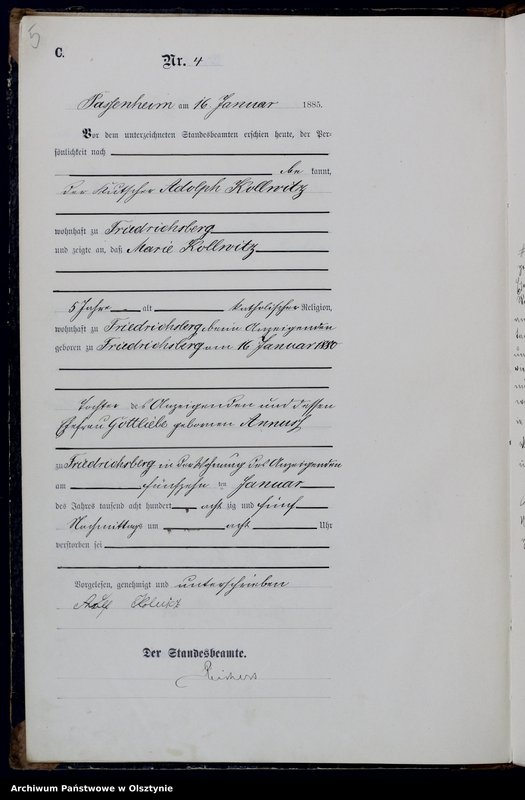 5
C.
Nr. 4
Passenheim am 16 Januar 1885.
Vor dem unterzeichneten Standesbeamten erschien heute, der Per-
sönlichkeit nach
be kannt,
der Kutscher Adolph Kollwitz
wohnhaft zu Friedrichsberg
und zeigte an, daß Marie Kollwitz
5 Jahre alt katholischer Religion,
wohnhaft zu Friedrichsberg beim Anzeigenden
geboren zu Friedrichsberg am 16 Januar 1880
Tochter des Anzeigenden und dessen
Ehefrau Gottliebe geborenen
zu Friedrichsberg in der Wohnung des Anzeigenden
am fünfzehn ten Januar
des Jahres tausend acht hundert acht zig und fünf
Nachmittags um acht Uhr
verstorben sei
Vorgelesen, genehmigt und unterschrieben
Der Standesbeamte.
Archiwum Państwowe w Olsztynie